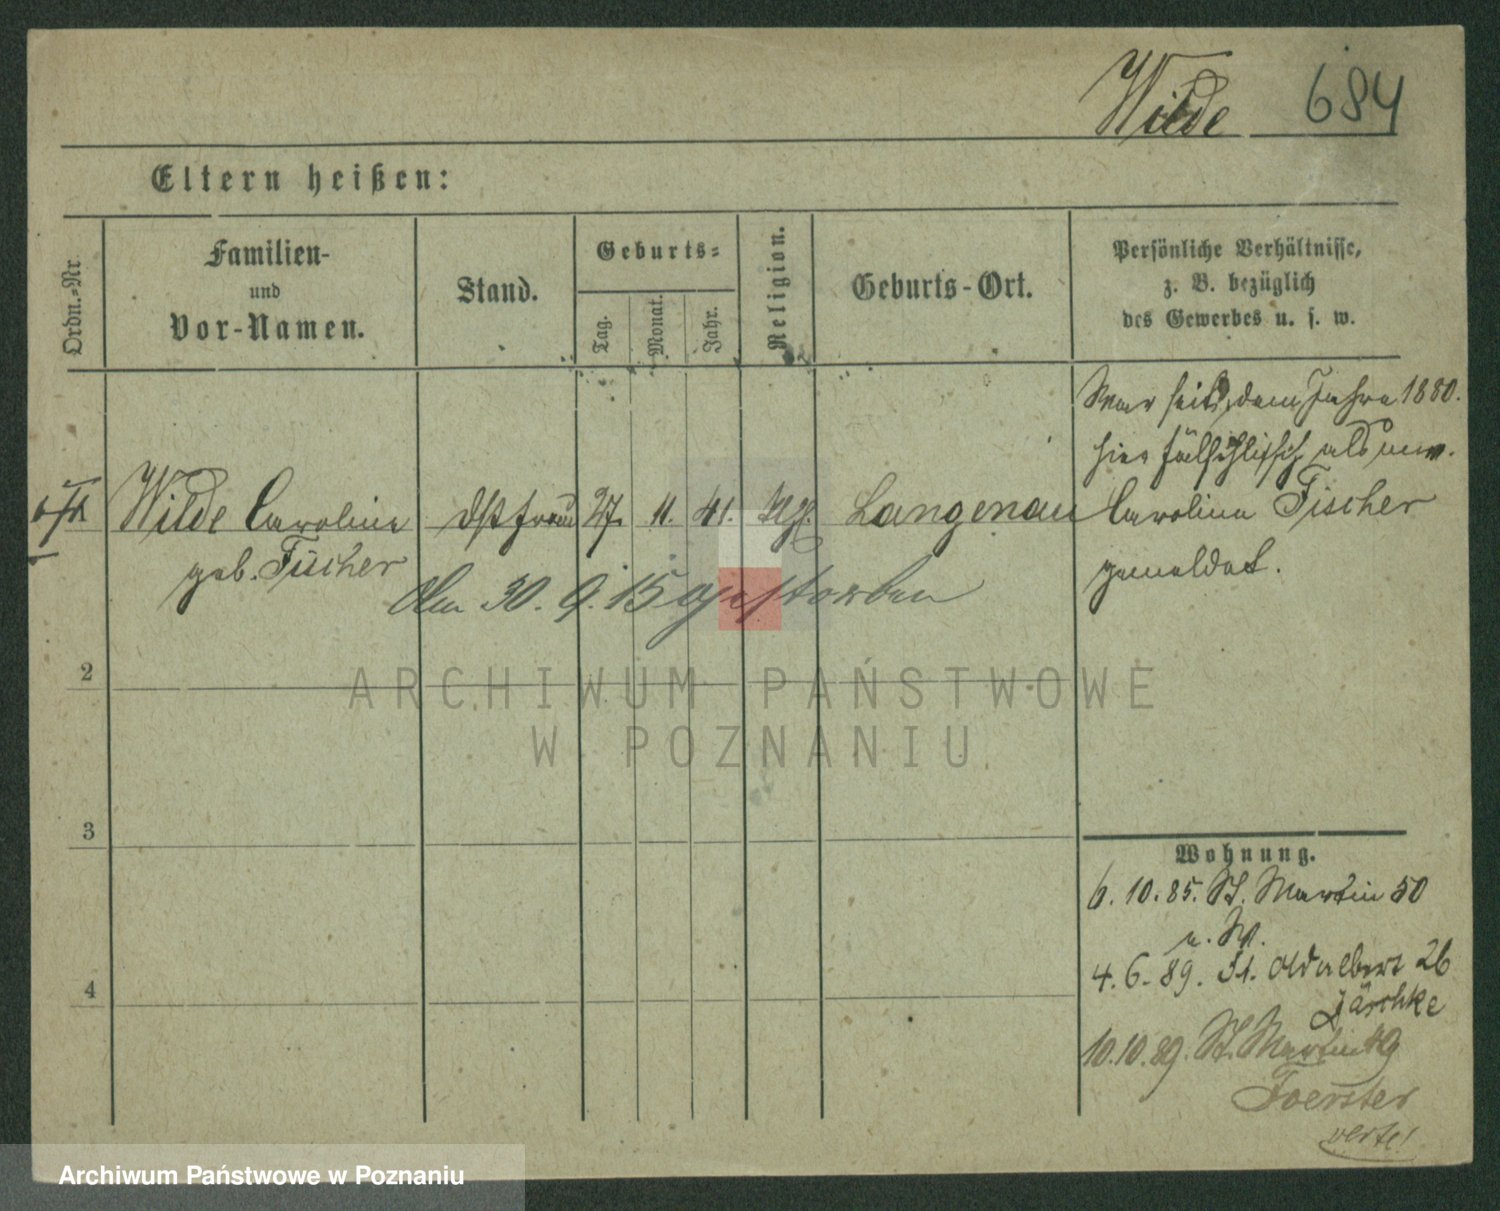 Wilde 684
Eltern heißen:
Ordn.=Nr.
Familien-
und
Vor-Namen.
Stand.
Geburts=
Tag.
Monat.
Jahr.
Religion.
Geburts-Ort.
Persönliche Verhältnisse,
z. B. bezüglich
des Gewerbes u. s. w.
War seit dem Jahre 1880.
hier fälschlich als unv.
Wilde Carolina 27. 11. 41. Langenau Carolina Fischer
geb. Fischer gemeldet.
Am 30. 9. 15 gestorben
2
3
4
Wohnung.
6. 10. 85. St. Martin 50
u. W.
4. 6. 89. St. Adalbert 26
Jäschke
10. 10. 89. St. Martin 49
Foerster
verte!
ARCHIWUM PAŃSTWOWE
W POZNANIU
Archiwum Państwowe w Poznaniu